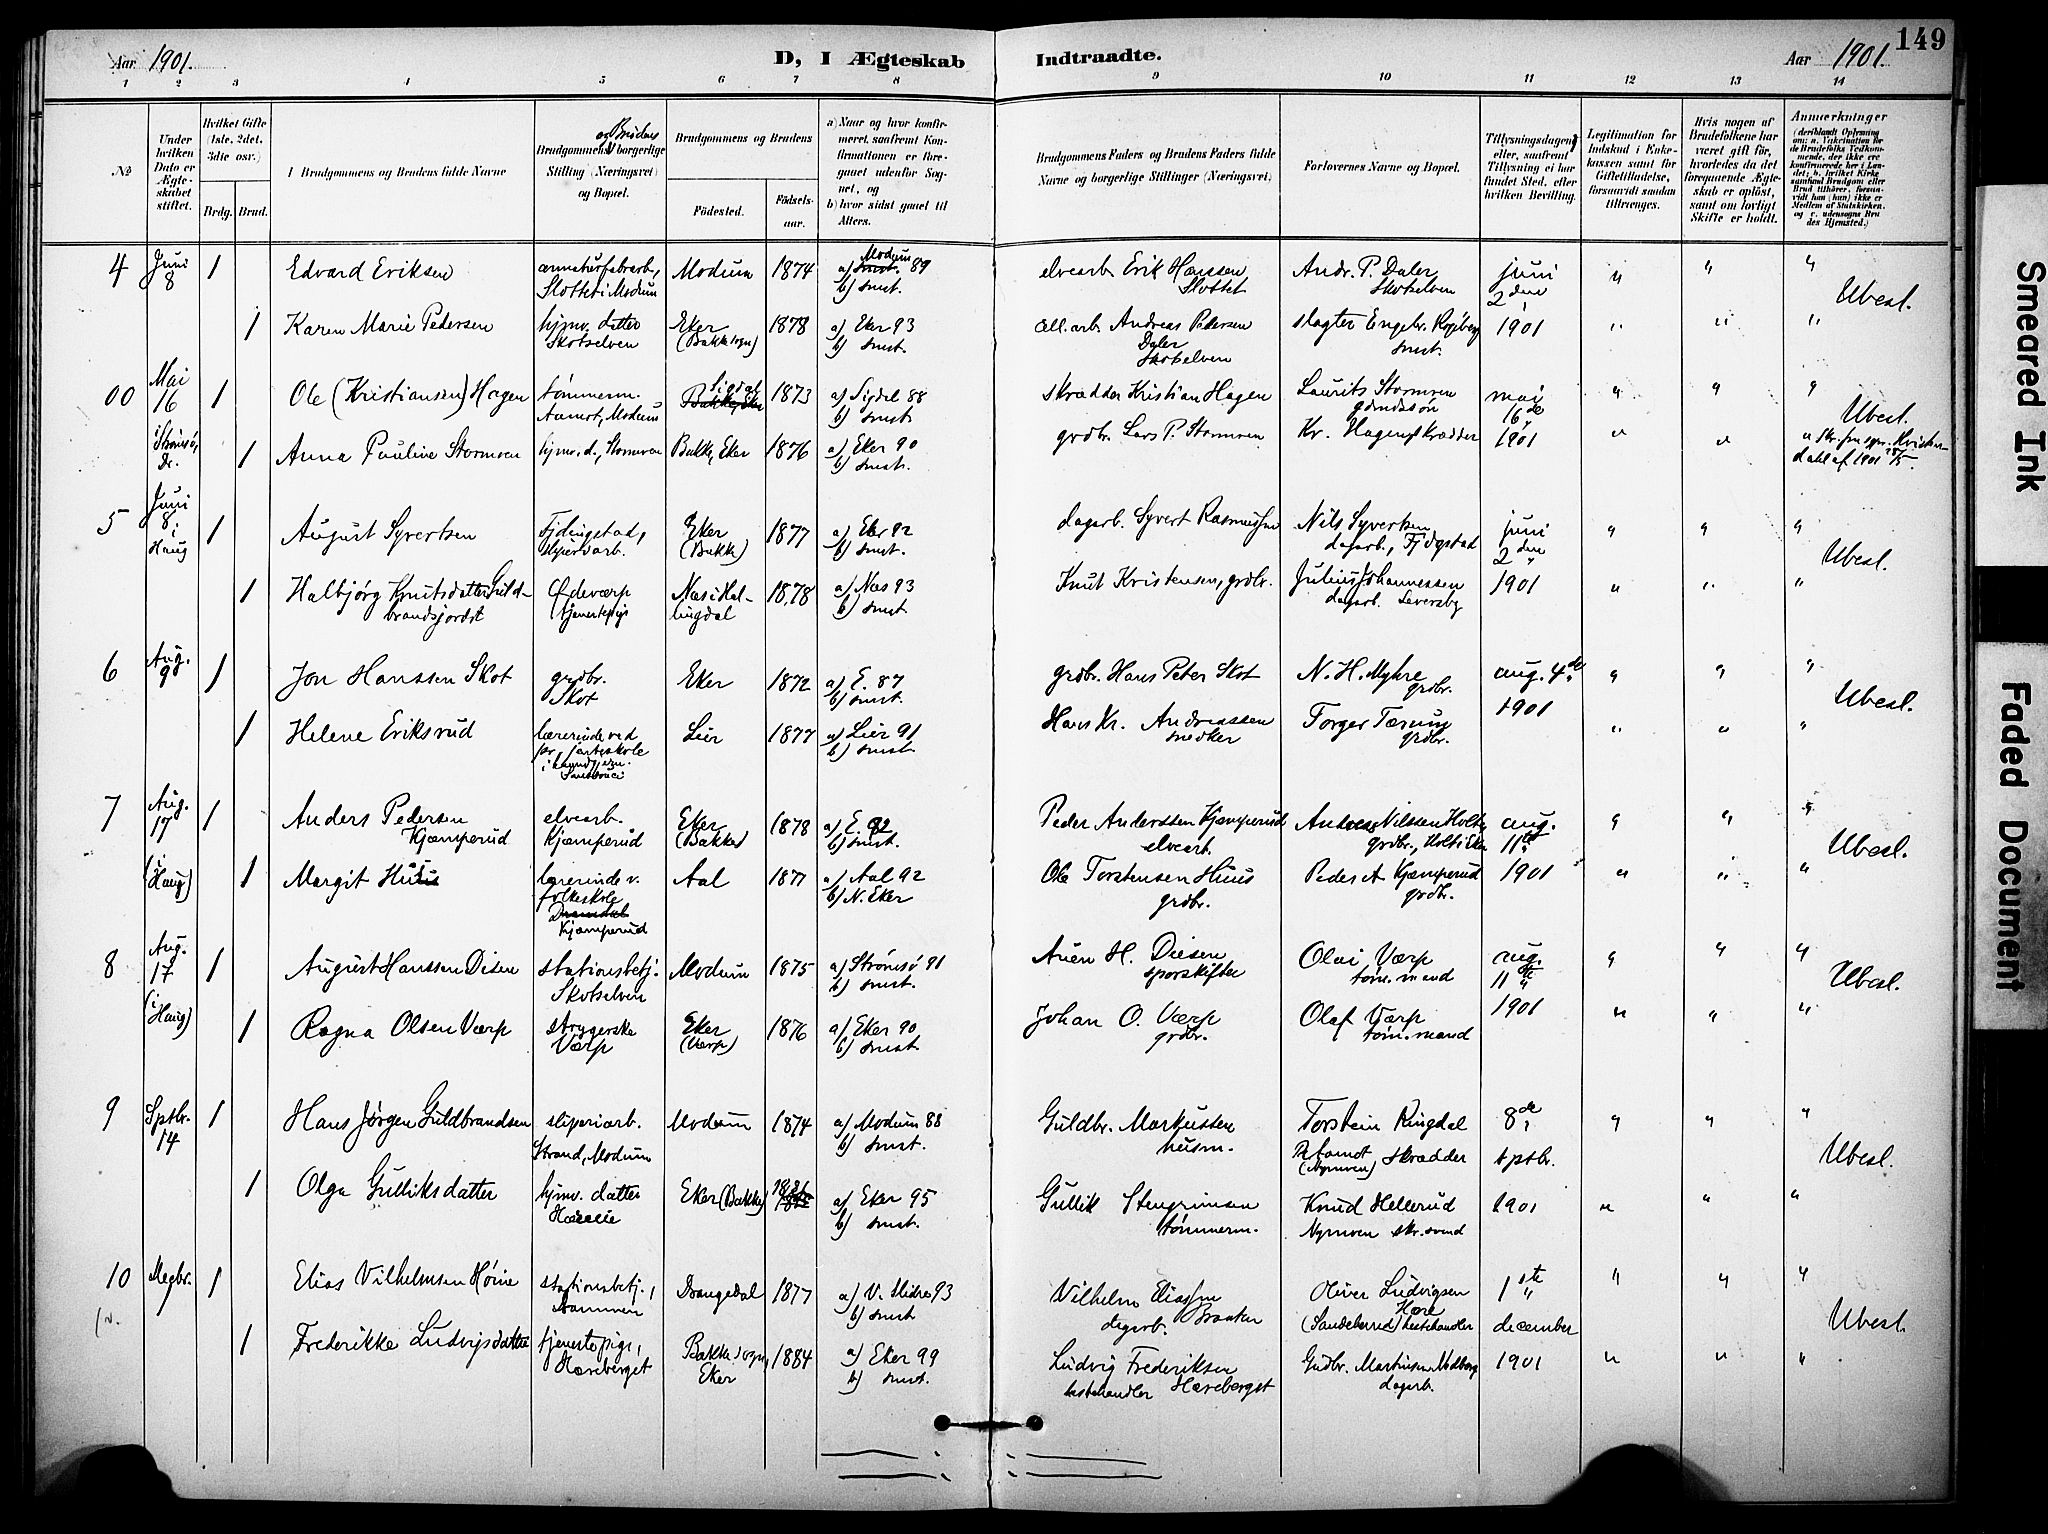 149
Aar 1901. D, I Ægteskab Indtraadte. Aar 1901.
1 2 3 4 5 6 7 8 9 10 11 12 13 14
№
Under hvilken Dato er Ægteskabet stiftet.
Hvilket Gifte (1ste, 2det, 3die osv.)
Brdg. Brud.
Brudgommens og Brudens fulde Navne
Brudgommens og Brudens borgerlige Stilling (Næringsvei) og Bopæl.
Brudgommens og Brudens
Fødested. Fødselsaar.
a) Naar og hvor konfirmeret, saafremt Konfirmationen er foregaaet udenfor Sognet, og
b) hvor sidst gaaet til Alters.
Brudgommens Faders og Brudens Faders fulde Navne og borgerlige Stillinger (Næringsvei)
Forlovernes Navne og Bopæl.
Tillysningsdagen, eller, saafremt Tillysning ei har fundet Sted, efter hvilken Bevilling.
Legitimation for Indskud i Enkekassen samt for Giftetilladelse, forsaavidt saadan tiltrænges.
Hvis nogen af Brudefolkene har været gift, hvorledes da det foregaaende Ægteskab er opløst, samt om lovligt Skifte er holdt.
Anmærkninger
4 Juni 8 1 Edvard Eriksen Slottet i Modum Modum 1874 a) Modum 89 b) smst. elvearb. Erik Hanssen Slottet Andr. P. Daler Skotselven juni 2den " " " Ubesl.
1 Karen Marie Pedersen hjmv. datter Skotselven Eker (Bakke sogn) 1878 a) Eker 93 b) smst. Andreas Pedersen Daler Skotselven slagter Engebr. smst. 1901 " " "
00 Mai 16 1 Ole (Kristiansen) Hagen tømmerm. Aamot, Modum Sigdal 1873 a) Sigdal 88 b) smst. skrædder Kristian Hagen Laurits Stormoen gaardssøn mai 16de " " " Ubesl.
1 Anna Pauline Stormoen hjmv. d., Stormoen Bakke, Eker 1876 a) Eker 90 b) smst. grdbr. Lars P. Stormoen Kr. Hagen skrædder 1901 " "
5 Juni 8 i Haug 1 August Syvertsen Fjdingstad, Eker (Bakke) 1877 a) Eker 92 b) smst. dagarb. Syvert Rasmussen Nils Syvertsen dagarb., juni 2den " " " Ubesl.
1 Halbjørg Knutsdatter Guldbrandsjordet Ødeværp tjenestepige Næs i Hallingdal 1878 a) Næs 93 b) smst Knut Kristensen, grdbr. Julius Johannessen dagarb. 1901 " " "
6 Aug. 9 1 Jon Hanssen Skot grdbr. Skot Eker 1872 a) E. 87 b) smst. grdbr. Hans Peter Skot N. H. Myhre grdbr. aug. 4de " " " Ubesl.
1 Helene Eriksrud lærerinde ved Lier 1877 a) Lier 91 b) smst. Hans Kr. Andreassen snedker Torger grdbr. 1901 " " "
7 Aug. 17 1 Anders Pedersen Kjæmperud elvearb. Kjæmperud Eker (Bakke) 1878 a) E. 92 b) smst. Peder Anderssen Kjæmperud elvearb. Nilssen grdbr., aug. 11te " " " Ubesl.
(i Haug) 1 Margit Huus lærerinde v. folkeskole Kjæmperud Aal 1877 a) Aal 92 b) N. Eker Ole Torstensen Huus grdbr. Peder A Kjæmperud grdbr. 1901 " " "
8 Aug. 17 1 August Hanssen Disen stationsbetj. Skotselven Modum 1875 a) Strømsø 91 b) smst. H. Diesen sporskifter Olai Værp tøm.mand aug. 11te " " " Ubesl.
(i Haug) 1 Ragna Olsen Værp strygerske Værp Eker (Værp) 1876 a) Eker 90 b) smst. Johan O. Værp grdbr. Olaf Værp tøm.mand 1901 " " "
9 Sptbr. 14 1 Hans Jørgen Guldbrandsen sliperiarb. Strand, Modum Modum 1874 a) Modum 88 b) smst. Guldbr. Markussen husm. Torstein Ringdal (Nymoen) skrædder 8de sptbr. " " " Ubesl.
1 Olga Gulliksdatter hjmv. datter Eker (Bakke) a) Eker 95 b) smst. Gullik Stengrimsen tømmerm. Knud Hellerud Nymoen skr.svend 1901 " " "
10 1 Elias Vilhelmsen stationsbetj., Drangedal 1877 a) V. Slidre 93 b) smst Vilhelm Eliassen dagarb. Oliver Ludvigsen Hære hestehandler 1ste december " " " Ubesl.
1 Frederikke Ludvigsdatter tjenestepige, Hæreberget Bakke sogn, Eker 1884 a) Eker 99 b) smst. Ludvig Frederiksen hestehandler Hæreberget Gudbr. Martinsen dagarb. 1901 " " "
Smeared Ink
Faded Document